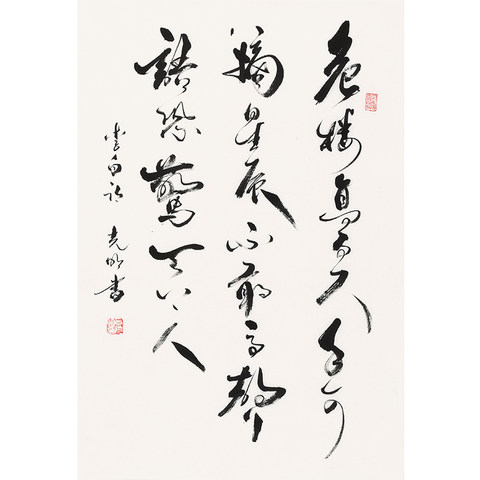 危樓高百尺手可
摘星辰不敢高聲
語恐驚天上人
李白詩 克明書